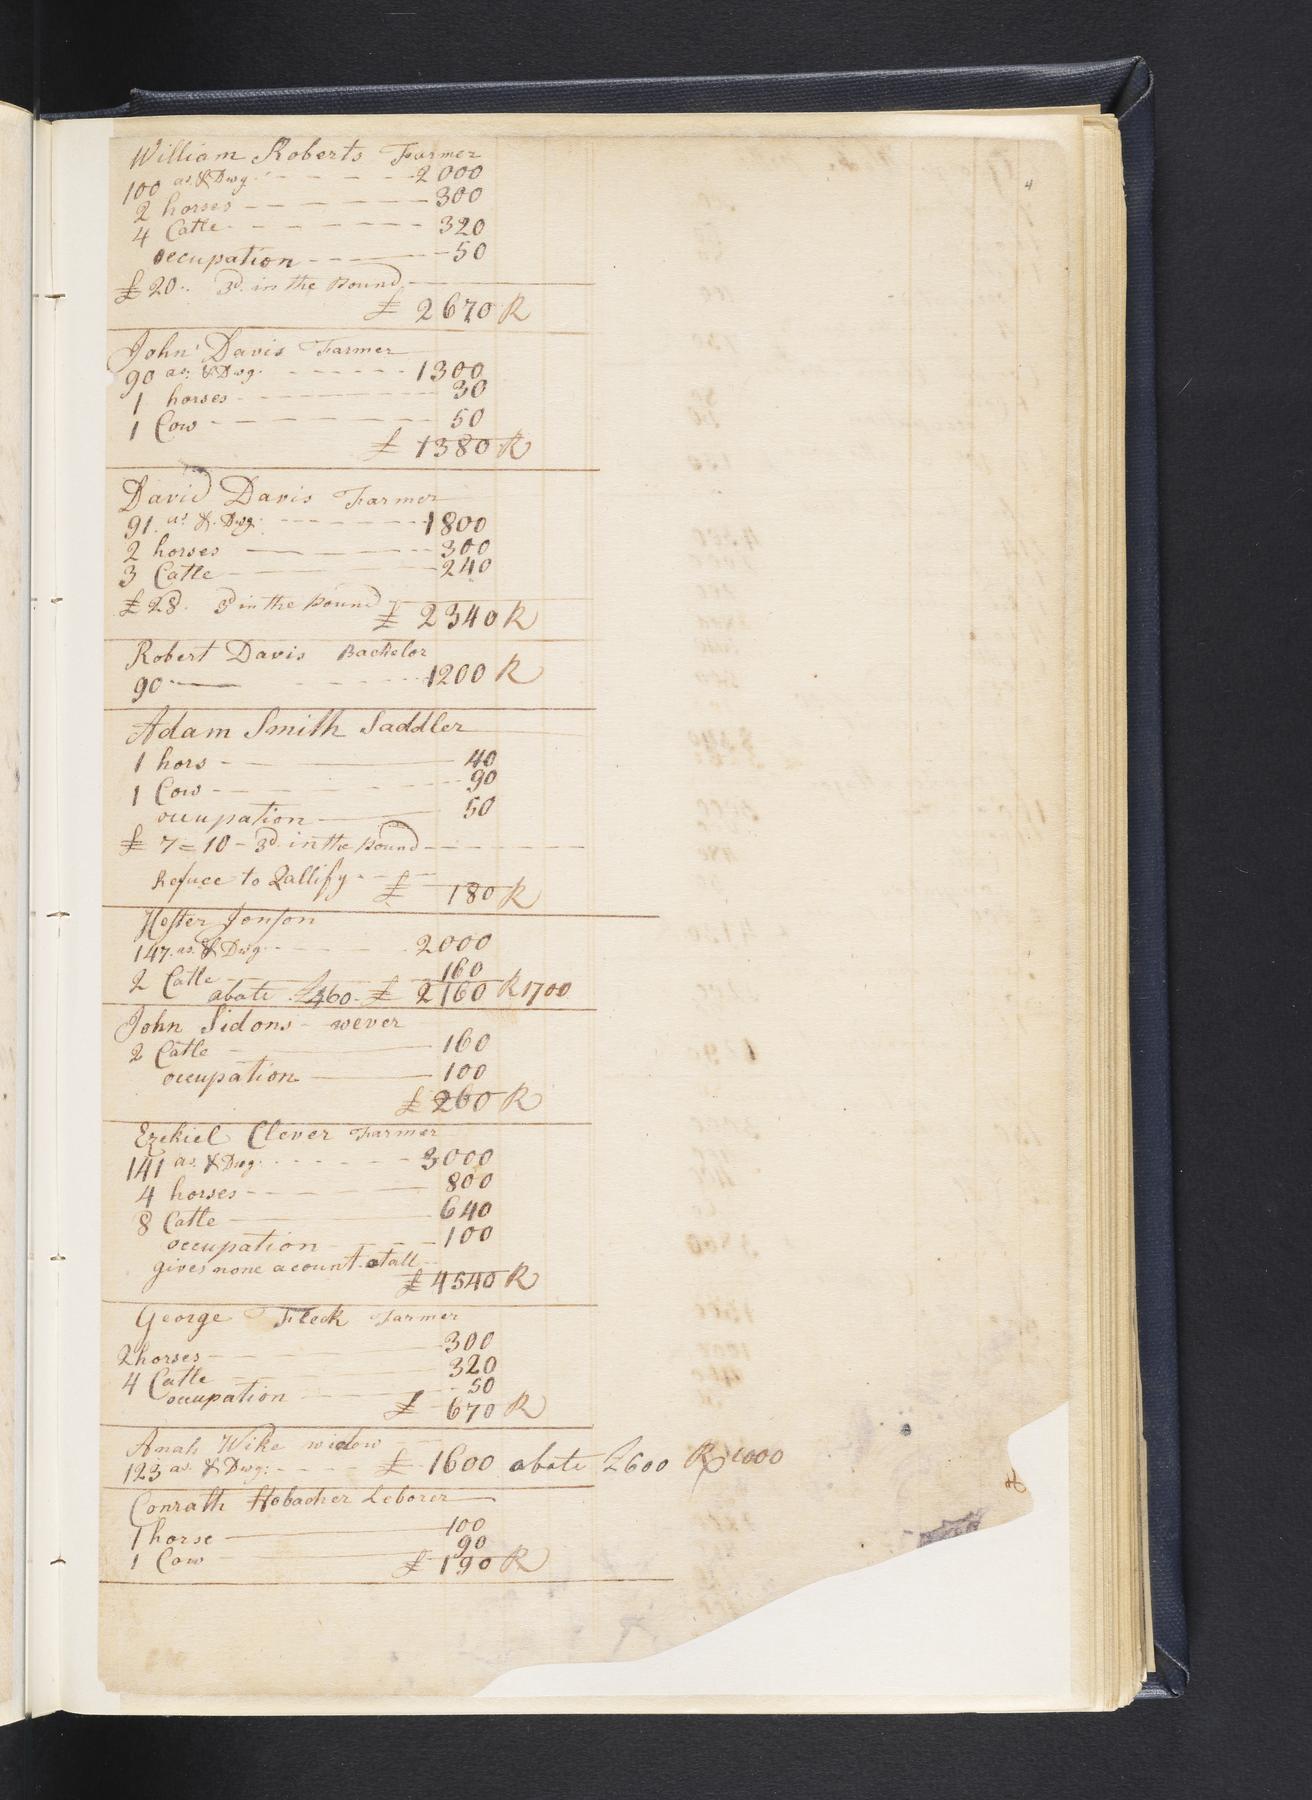 4
William Roberts Farmer
100 as. & Dwg. 2000
2 horses 300
4 Catle 320
occupation 50
£ 20.. 3d. in the pound
£ 2670 R
John Davis Farmer
90 as. & Dwg. 1300
1 horses 30
1 Cow 50
£ 1380 R
David Davis Farmer
91. as. & Dwg. 1800
2 horses 300
3 Catle 240
£ 28. 3d in the pound
£ 2340 R
Robert Davis Bachelor
90 1200 R
Adam Smith Saddler
1 hors 40
1 Cow 90
occupation 50
£ 7=10 - 3d. in the pound
Refuce to Qallify £ 180 R
Hester Jonson
147. as. & Dwg. 2000
2 Catle 160
abate £460. £ 2160 R 1700
John Sidons wever
2 Catle 160
occupation 100
£ 260 R
Ezekiel Clever Farmer
141 as. & Dwg. 3000
4 horses 800
8 Catle 640
occupation 100
gives none acount atall
£ 4540 R
George Fleck Farmer
2 horses 300
4 Catle 320
occupation 50
£ 670 R
Anah Wike widow
123 as. & Dwg: £ 1600 abate £600 R 1000
Conrath Hobacher Leborer
1 horse 100
1 Cow 90
£ 190 R